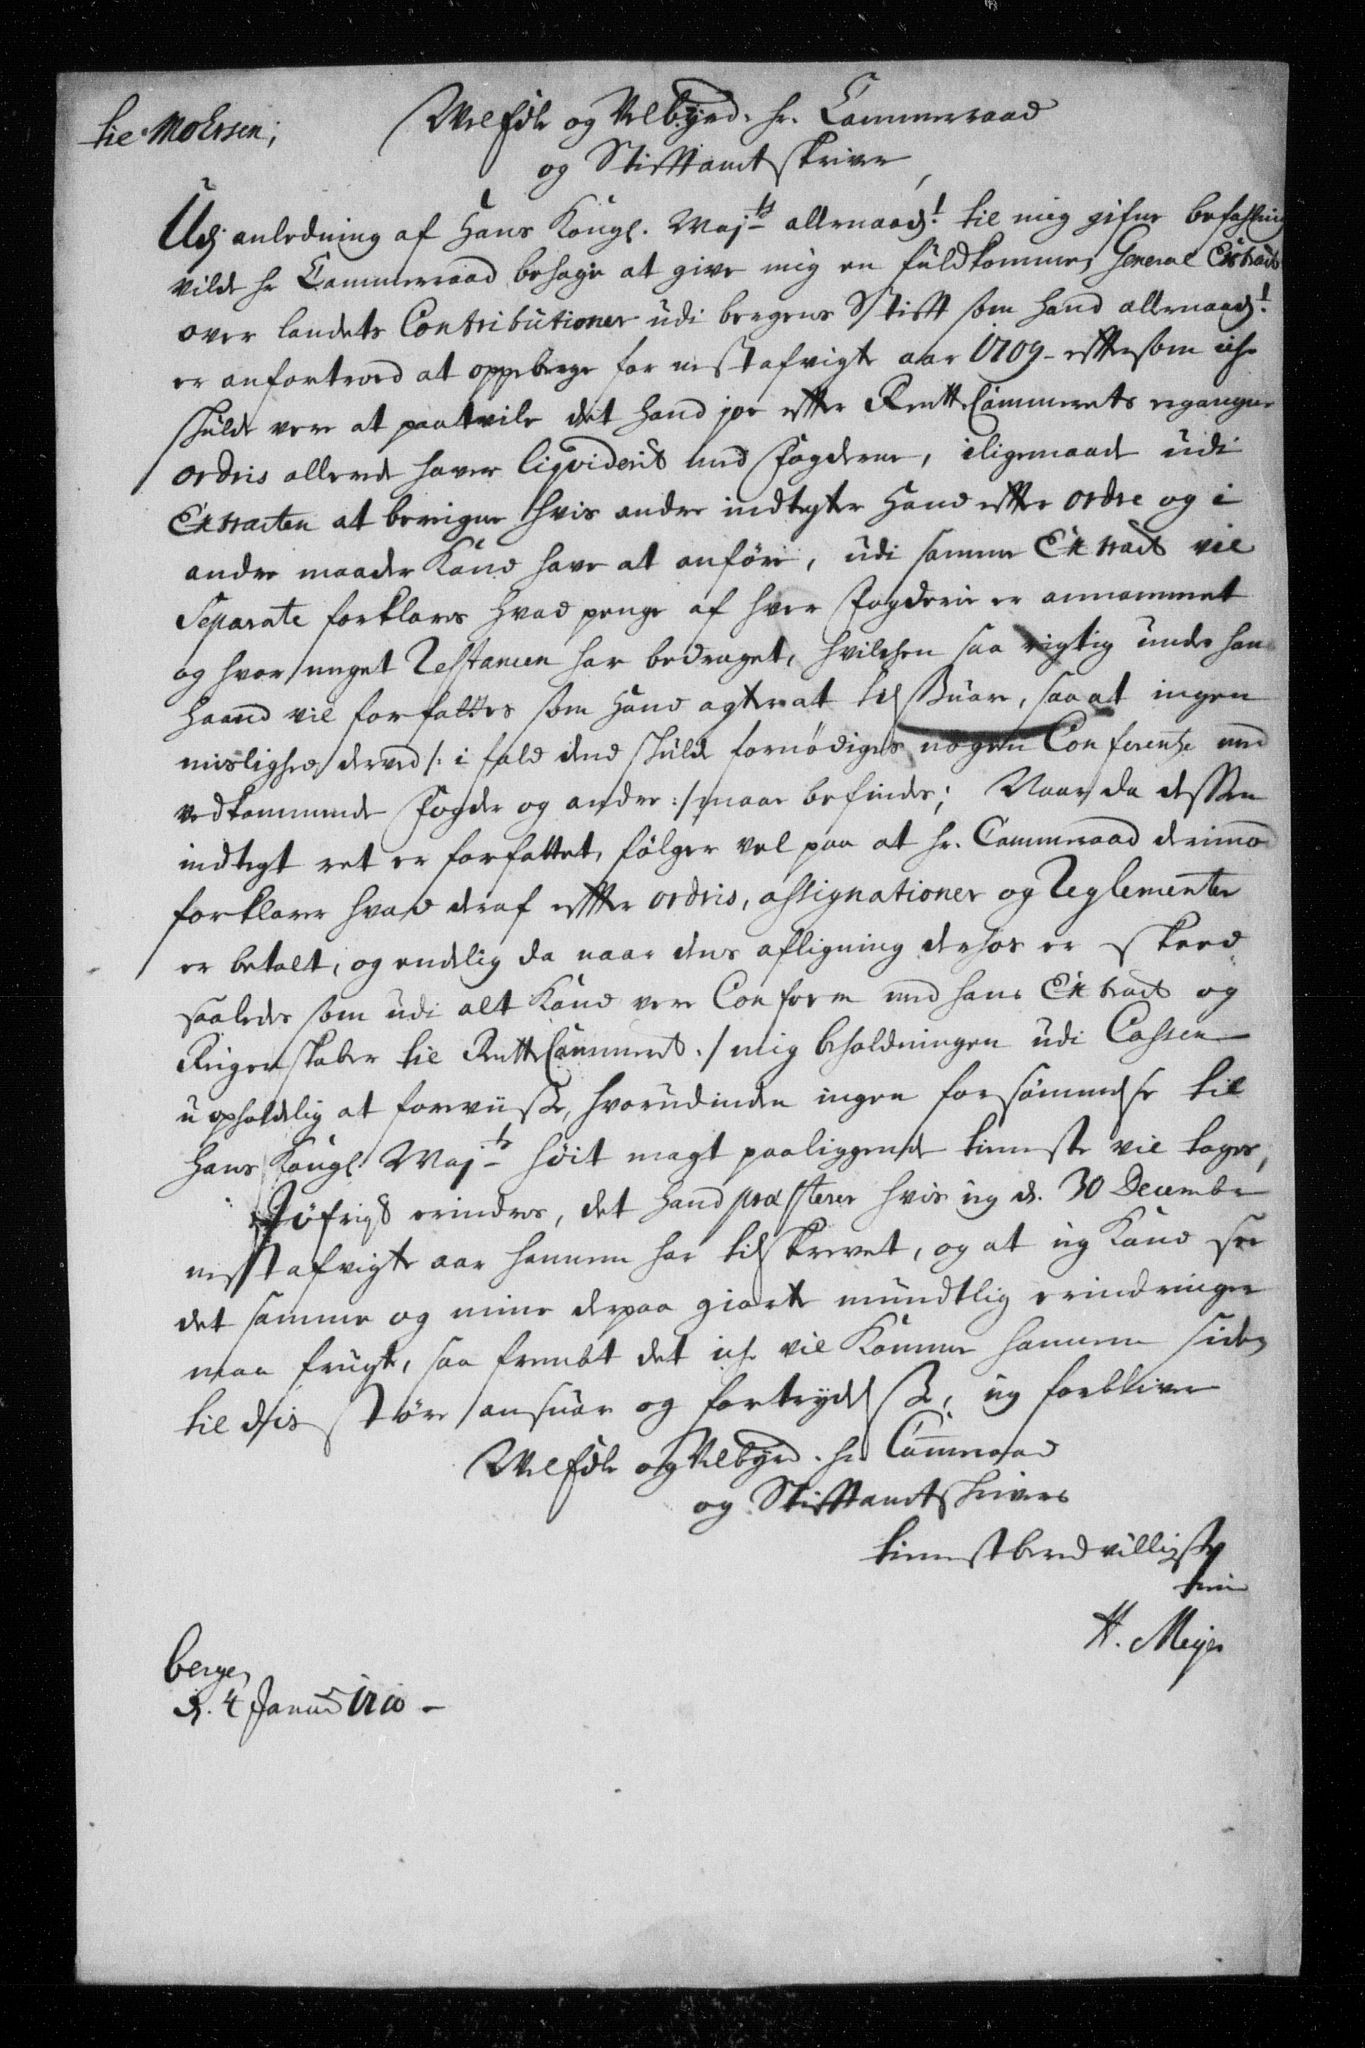 til Mohrsen;
Welædle og Velbyrd. hr. Cammerraad
og Stifftamtskriver
Udj anledning af Hans Kongl. Maj:ts allernaad:t til mig gifne befahling
vilde hr Cammerraad behage at give mig en fuldkommen General Extract
over landets Contributioner udi bergens Stift som hand allernaad:t
er anfortroed at oppeberge for nestafvigte aar 1709 - eftersom iche
skulde vere at paatvile det hand joe effter RentteCammerets ergangne
ordris allerede haver liqviderit med Fogderne, iligemaade udi
Extracten at berigne hvis andre indtegter Hand effter ordre og i
andre maader Kand have at anföre, udi samme Extract vil
Separate forklares hvad penge af hver Fogderie er annammet
og hvor meget Restancen har bedraget, hvilchen saa rigtig under hans
haand vil forfattes som Hand agter at tilsvare, saa at ingen
mislighed derved /: i fald dend skulde fornödiges nogen Conferentze med
vedkommende Fogder og andre :/ maae befindes; Naar da dessen
indtegt ret er forfattet, fölger vel paa at hr. Cammerraad derimod
forklarer hvad deraf effter ordris, assignationer og Reglementer
er betalt, og endelig da naar dens afligning derhos er skeed
saaledes som udi alt Kand vere Conform med hans Extract og
Regenskaber til RentteCammeret ./ mig beholdningen udi Cassen
uopholdelig at foreviise, hvorudinden ingen forsömmelse til
Hans Kongl. Maj:ts höit magt paaliggende tieneste vil tages,
Jöfrigt erindres, det Hand præsterer hvis ieg d. 30 Decembr
nestafvigte aar hannem har tilskrevet, og at ieg Kand see
det samme og mine derpaa giorte mundtlig erindringer
maa frugte, saa frembt det iche vil Komme hannem siden
til dis störe ansvar og fortrydelse, ieg forbliver
Welædle og Velbyrd. hr Cammeraad
og Stifftamtskrivers
tienestberedvilligste
tiener
H. Meyer
bergen
d. 4 Janu: 1710 -